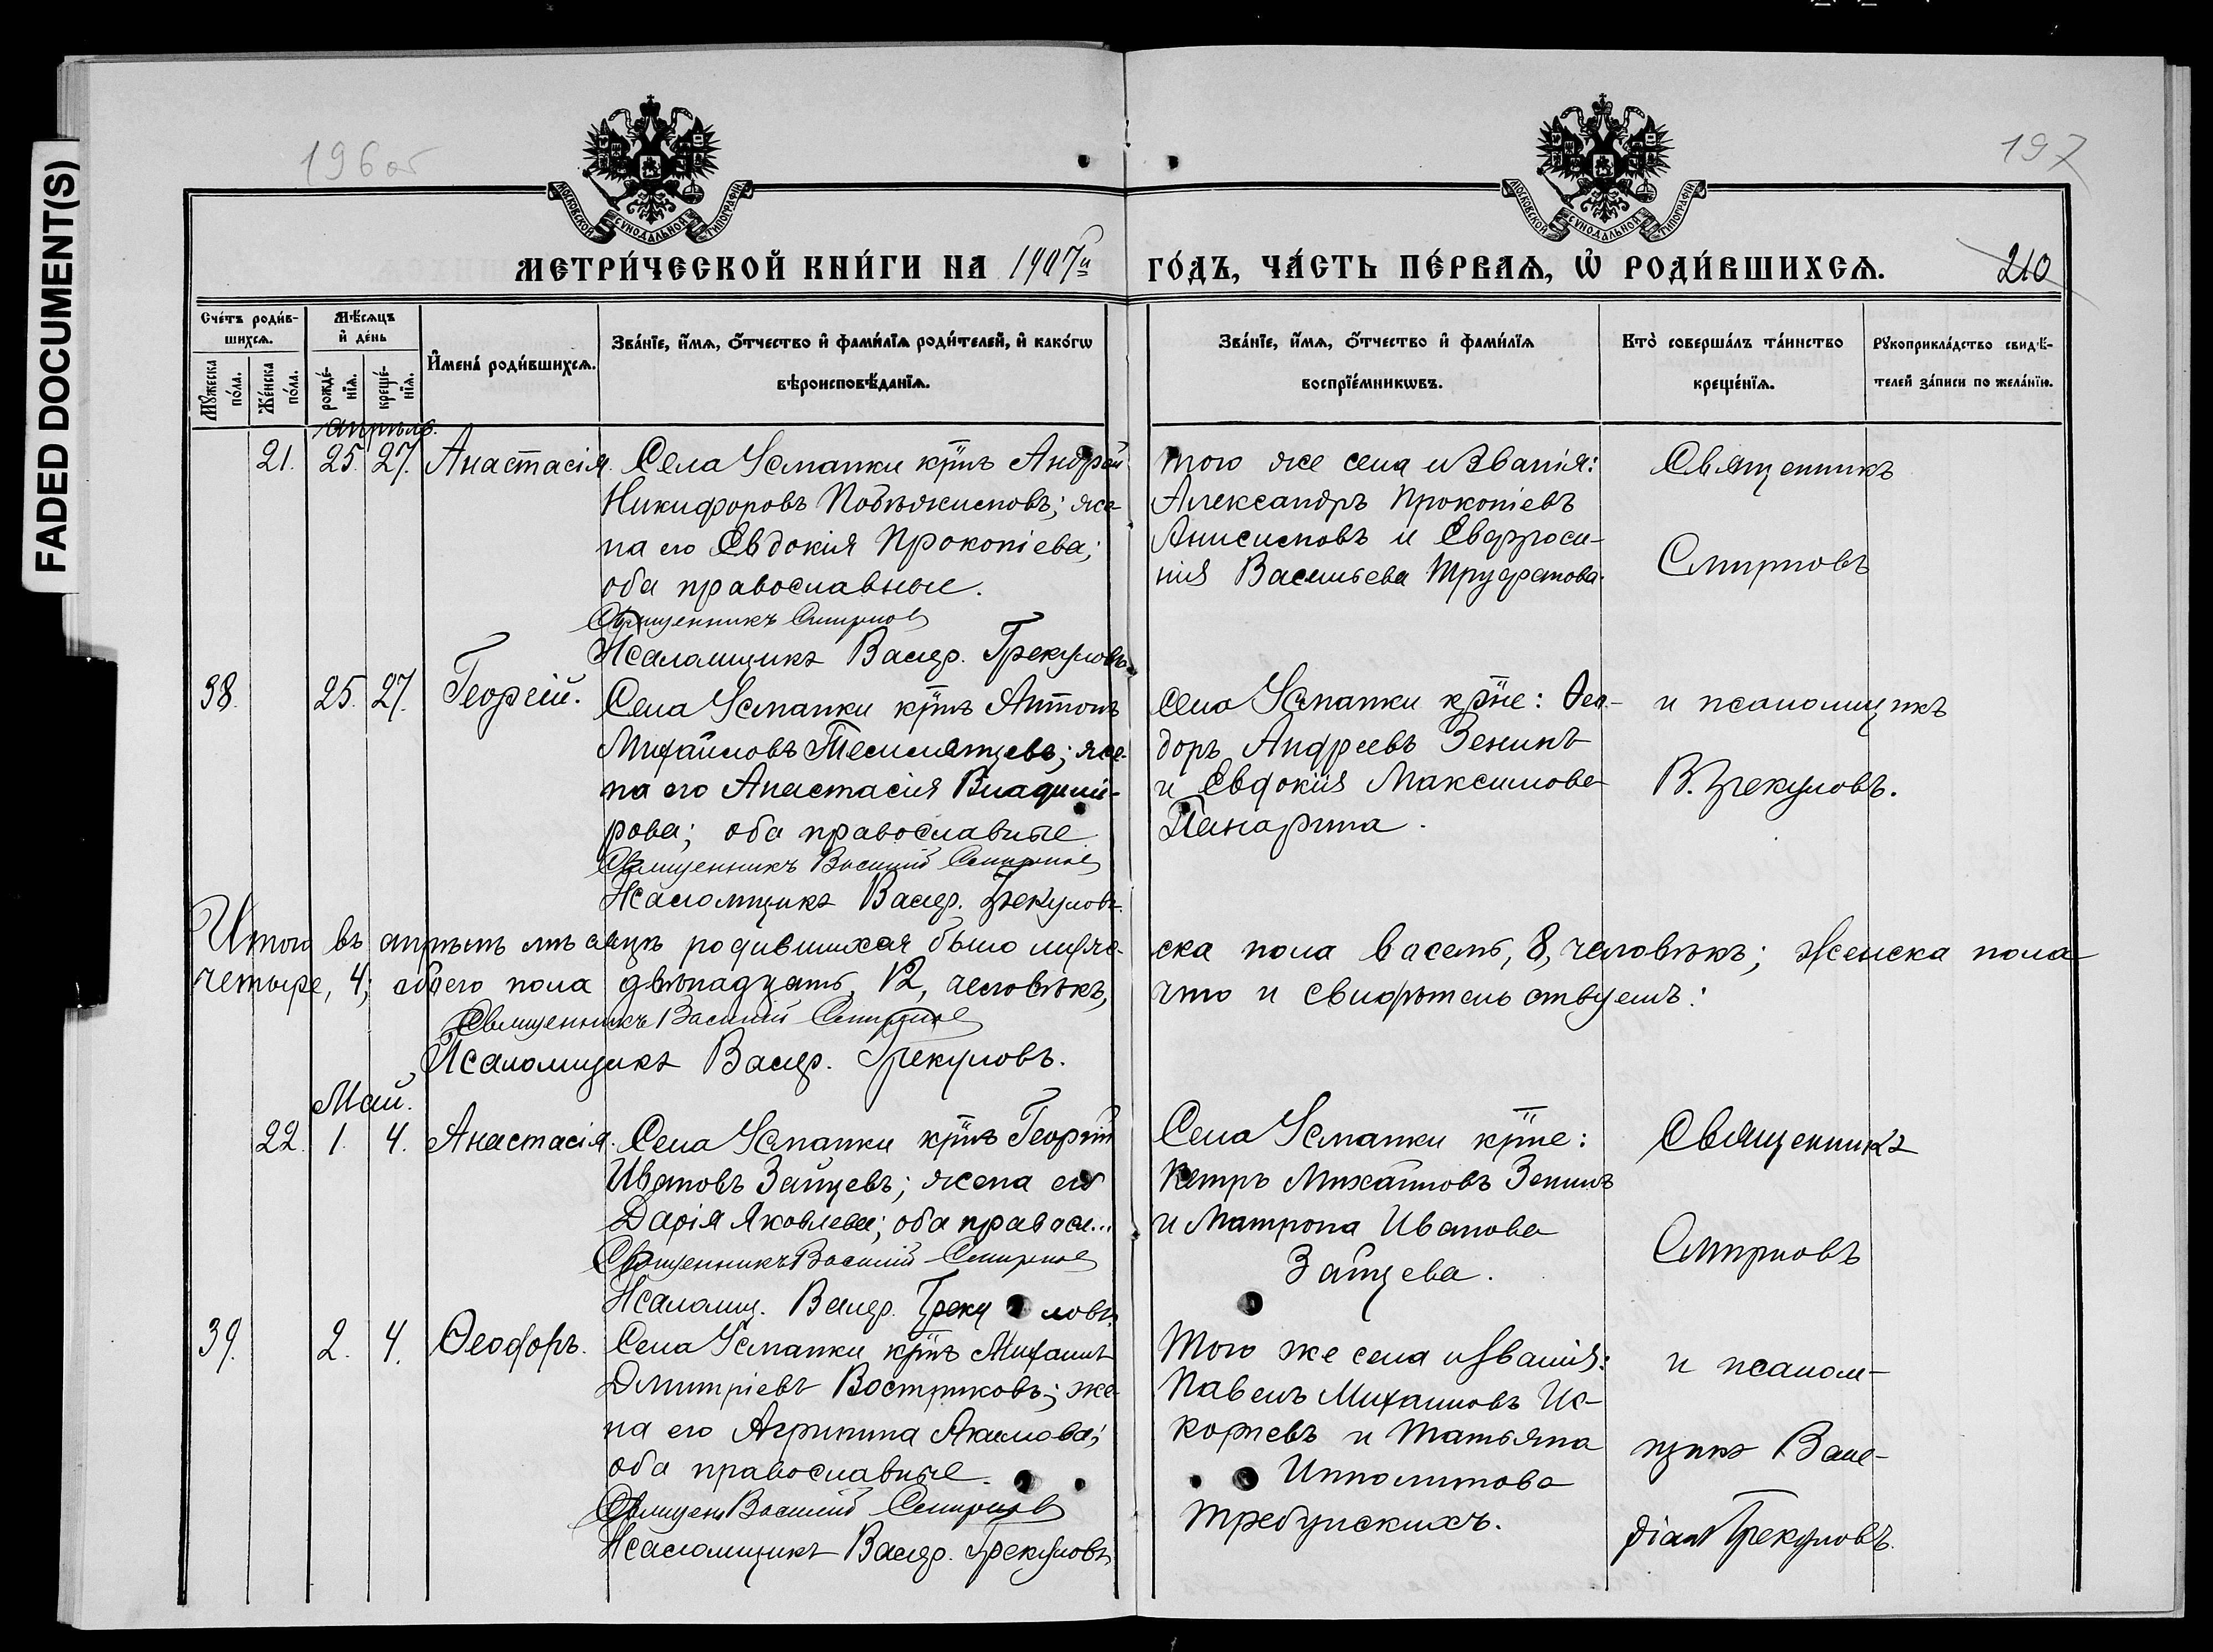 FADED DOCUMENT(S)
196 об
197
МОСКОВСКОЙ СѴНОДАЛЬНОЙ ТИПОГРАФІИ
МОСКОВСКОЙ СѴНОДАЛЬНОЙ ТИПОГРАФІИ
МЕТРИ́ЧЕСКОЙ КНИ́ГИ НА 1907й
ГО́ДЪ, ЧА́СТЬ ПЕ́РВАѦ, Ѡ РОДИ́ВШИХСѦ.
210
Сче́тъ роди́в-
шихсѧ.
Мꙋ́жеска по́ла.
Же́нска по́ла.
Мѣ́сѧцъ
и де́нь
рожде́-
нїѧ.
креще́-
нїѧ.
Имена̀ роди́вшихсѧ.
Зва́нїе, и́мѧ, о́тчество и фами́лїѧ роди́телей, и како́гѡ
вѣроисповѣ́данїѧ.
Зва́нїе, и́мѧ, о́тчество и фами́лїѧ
воспрїе́мникѡвъ.
Кто̀ соверша́лъ та́инство
креще́нїѧ.
Рꙋкоприкла́дство свидѣ́-
телей за́писи по жела́нїю.
апрѣль.
21. 25. 27. Анастасія.
Села Усманки крн҃ъ Андрей
Никифоровъ Побѣжимовъ; же-
на его Евдокія Прокопіева;
оба православные.
Священникъ Смирнов
Псаломщикъ Валер. Трекуловъ.
того же села и званія:
Александръ Прокопіевъ
Анисимовъ и Евфроси-
нія Васильева Труфанова.
Священникъ
Смирновъ
38. 25. 27. Георгій.
Села Усманки крн҃ъ Антонъ
Михайловъ; же-
на его Анастасія Владимі-
рова; оба православные
Священникъ Василий Смирнов
Псаломщикъ Валер. Трекуловъ.
Села Усманки крн҃е: Ѳео-
доръ Андреевъ Зенинъ
и Евдокія Максимова
Панарина.
и псаломщикъ
В. Трекуловъ.
Итого въ апрѣлѣ мѣсяцѣ родившихся было муже-
ска пола восемь, 8, человѣкъ; женска пола
четыре, 4; обоего пола двѣнадцать, 12, человѣкъ,
что и свидѣтельствуемъ:
Священникъ Василий Смирнов
Псаломщикъ Валер. Трекуловъ.
Май.
22. 1. 4. Анастасія.
Села Усманки крн҃ъ Георгій
Ивановъ Зайцевъ; жена его
Дарія Яковлева; оба правосл..
Священникъ Василий Смирнов
Псаломщ. Валер. Трекуловъ.
Села Усманки крн҃е:
Петръ Михайловъ Зенинъ
и Матрона Иванова
Зайцева.
Священникъ
Смирновъ
39. 2. 4. Ѳеодоръ.
Села Усманки крн҃ъ Михаилъ
Дмитріевъ Востриковъ; же-
на его Агрипина Акимова;
оба православные.
Священ. Василий Смирнов
Псаломщикъ Валер. Трекуловъ
Того же села и званія:
Павелъ Михаиловъ Ис-
корневъ и Татьяна
Ипполитова
Требунскихъ.
и псалом-
щикъ Вале-
ріанъ Трекуловъ.